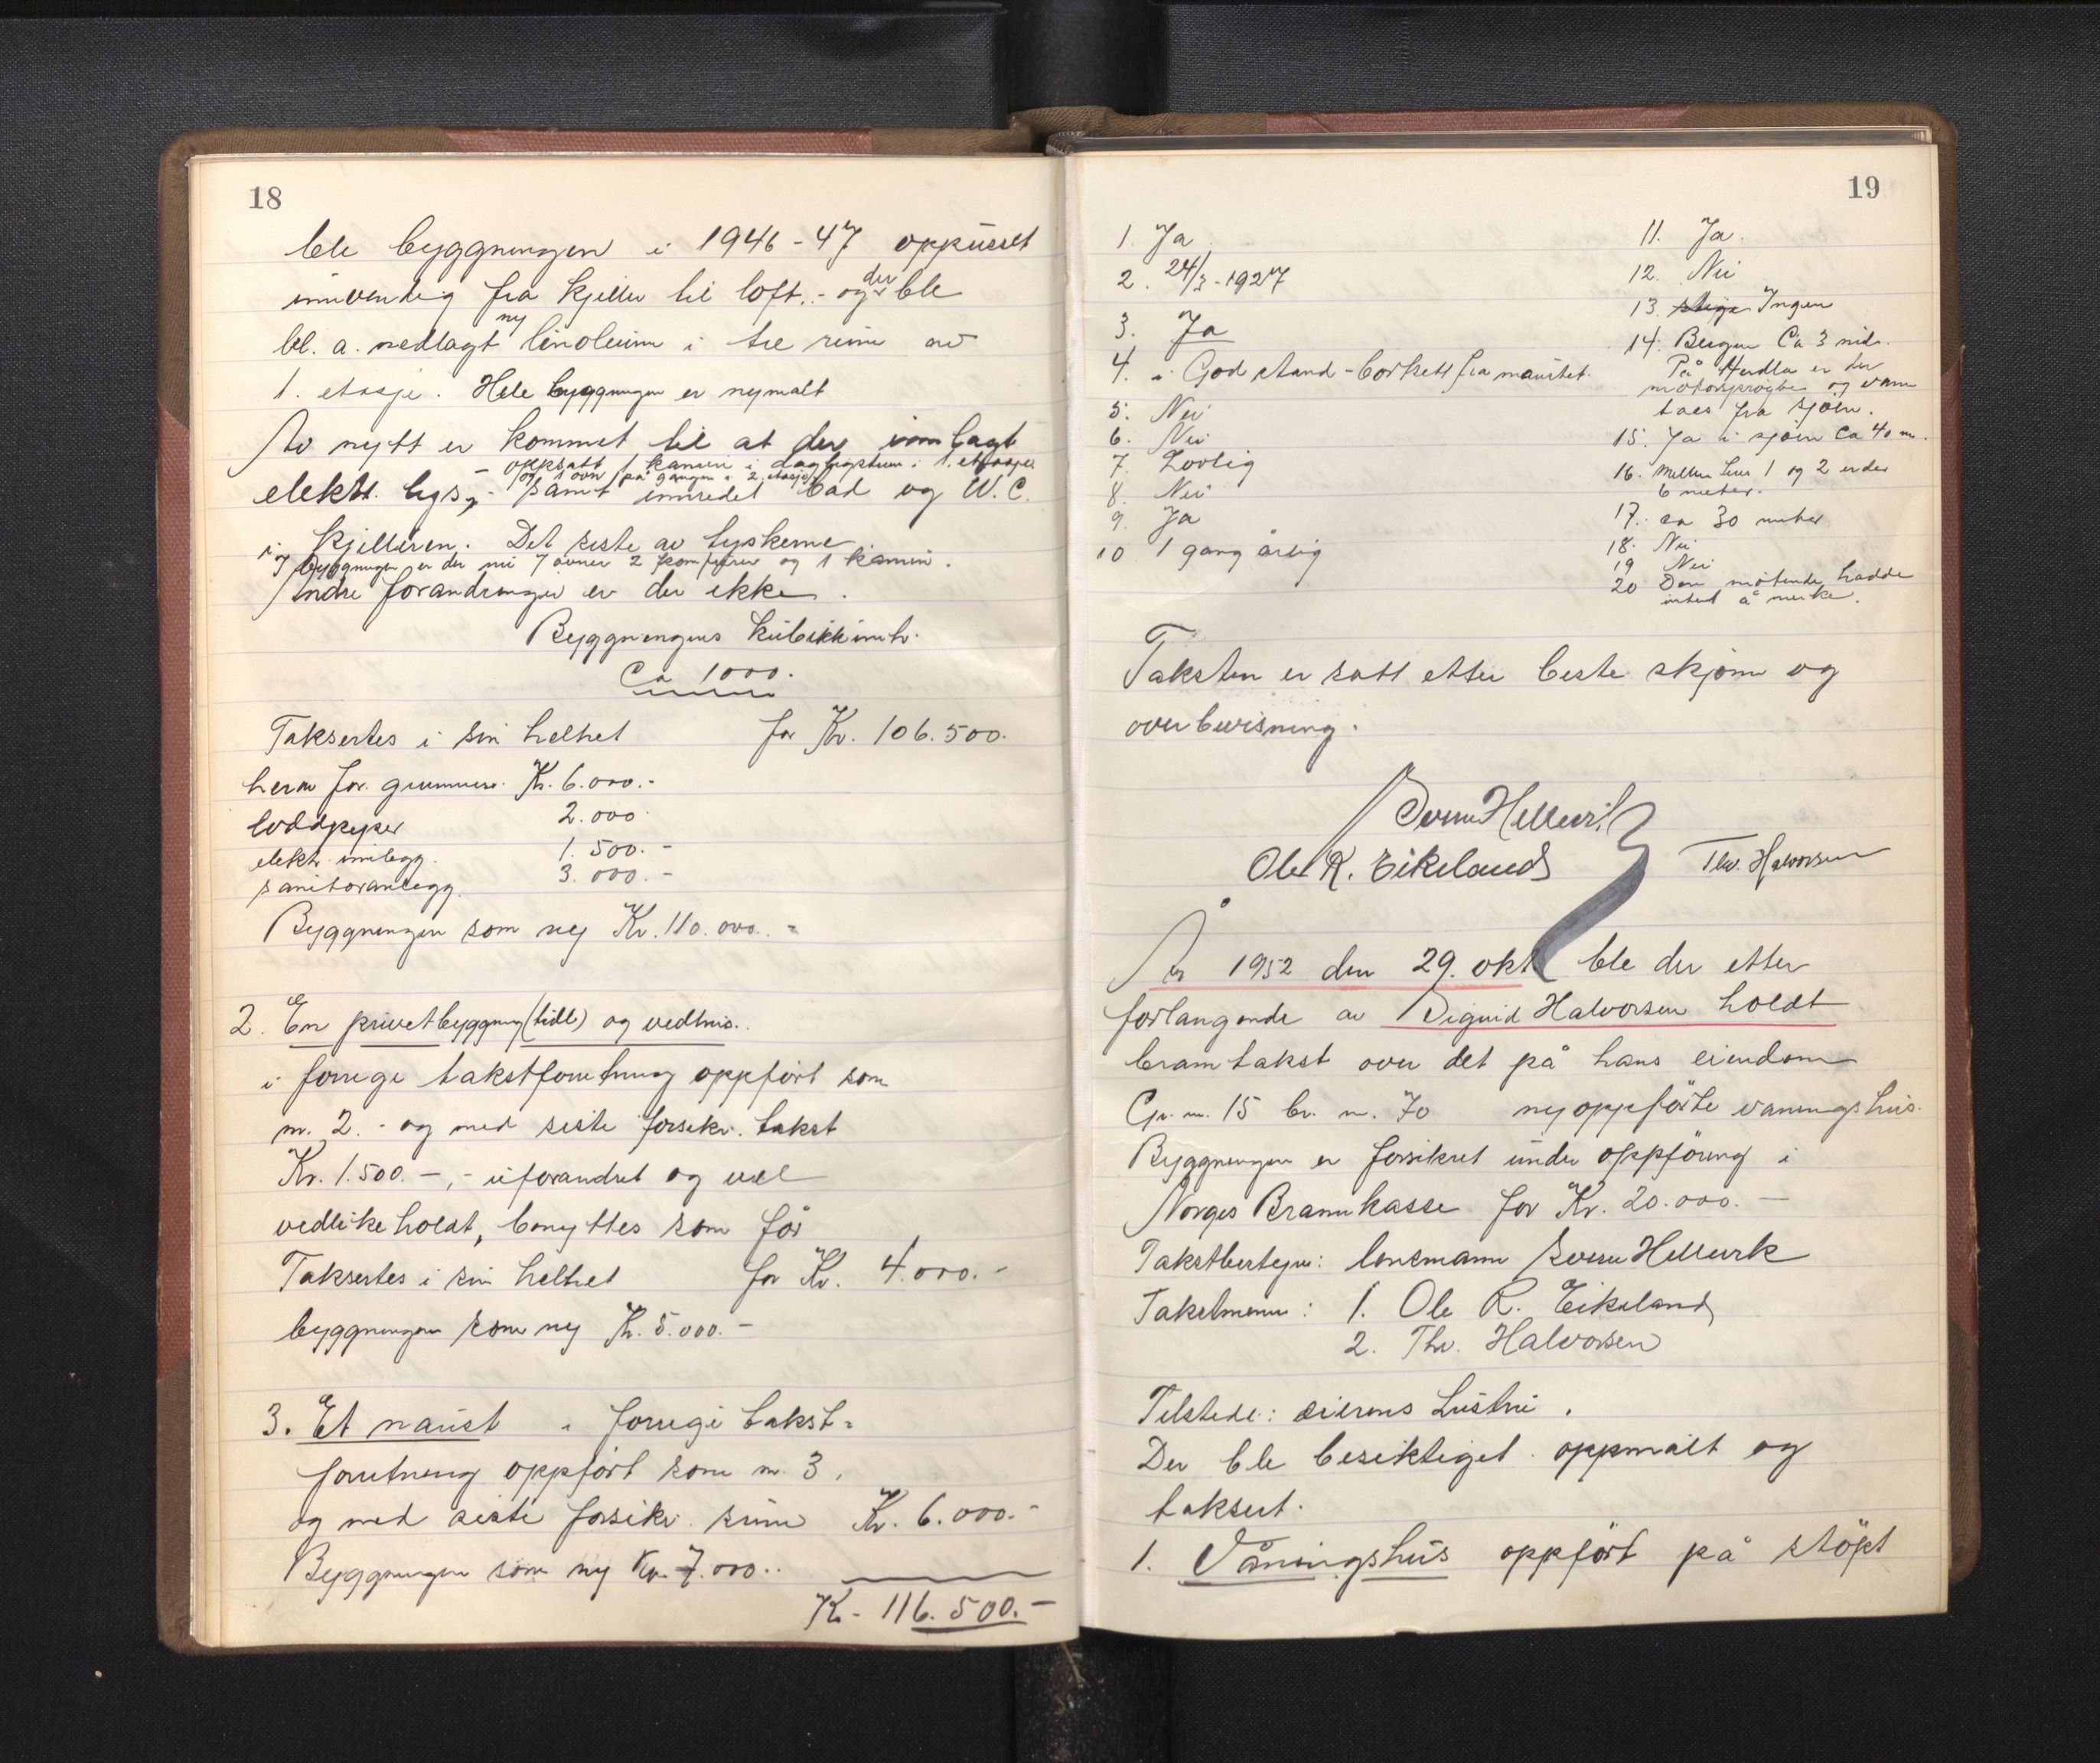 18
ble byggningen i 1946-47 oppusset
innvendig fra kjeller til loft. - og der ble
bl. a. nedlagt ny linoleum i tre rum av
1. etasje. Hele byggningen er nymalt
Av nytt er kommet til at der innlagt
- oppsatt 1 kamin i dagligstuen i 1. etasje
og 1 ovn på gangen i 2. etasje
elektr. lys, - samt innredet bad og W.C.
i kjelleren. Det siste av tyskerne.
I byggningen er der nu 7 ovner 2 komfyrer og 1 kamin.
Andre forandringer er der ikke.
Byggningens kubikkinnh.
Ca 1000.
Taksertes i sin helhet for Kr. 106.500.
herav for grunnmur. Kr. 6.000.-
loddpiper 2.000
elektr. innlegg. 1.500.-
sanitæranlegg. 3.000.-
Byggningen som ny Kr. 110.000.-
2. En privetbyggning (tidl) og vedhus.
i forrige takstforretning oppført som
nr. 2. - og med siste forsikr. takst
Kr. 1.500.-, - uforandret og vel
vedlikeholdt, benyttes som før
Taksertes i sin helhet for Kr. 4.000.-
byggningen som ny Kr. 5.000.-
3. Et naust i forrige takst-
forretning oppført som nr. 3.
og med siste forsikr. sum Kr. 6.000.-
Byggningen som ny Kr. 7.000..
Kr. 116.500.-
19
1. Ja
2. 24/3-1927
3. Ja
4. i God stand - bortsett fra naustet.
5. Nei
6. Nei
7. Lovlig
8. Nei
9. Ja
10 1 gang årlig
11. Ja.
12. Nei
13. stige Ingen
14. Bergen Ca 3 mil.
På Herdla er der
motorsprøyte og vann
taes fra sjøen.
15. Ja i sjøen ca 40 m.
16. Mellem hus 1 og 2 er der
6 meter.
17. ca 30 meter
18. Nei
19 Nei
20 Den møtende hadde
intet å merke.
Taksten er satt etter beste skjønn og
overbevisning.
Sverre Hellevik
Ole R. Eikeland Thv. Halvorsen
År 1952 den 29. okt ble der etter
forlangende av Sigurd Halvorsen holdt
branntakst over det på hans eiendom
Gr. nr. 15 br. nr. 70 nyoppførte våningshus.
Byggningen er forsikret under oppføring i
Norges Brannkasse for Kr. 20.000.-
Takstbestyrer: lensmann Sverre Hellevik
Takstmenn: 1. Ole R. Eikeland
2. Thv. Halvorsen
Tilstede: eierens hustru.
Der ble besiktiget oppmålt og
taksert.
1. Våningshus oppført på støpt